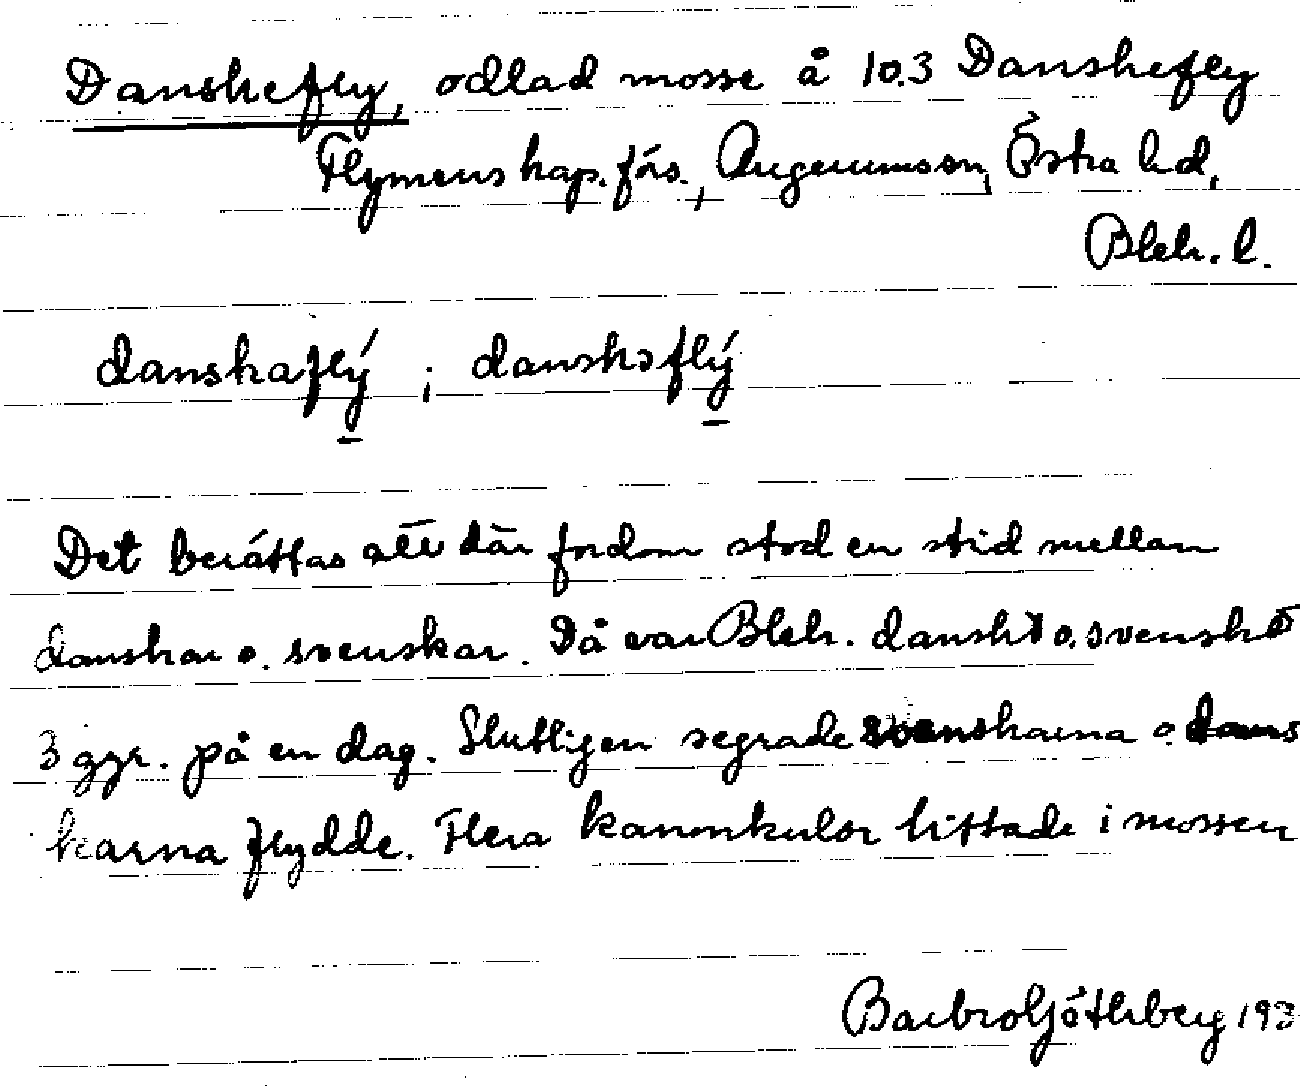 Danskefly, odlad mosse å 10.3 Danskefly
Flymens kap. förs., Augerumssn, Östra hd,
Blek. l.
danskaflý ; danskəflý
Det berättas att där fordom stod en strid mellan
danskar o. svenskar. Då var Blek. danskt o. svenskt
3 ggr. på en dag. Slutligen segrade svenskarna o. dans
karna flydde. Flera kanonkulor hittade i mossen
Barbro Göthberg 193